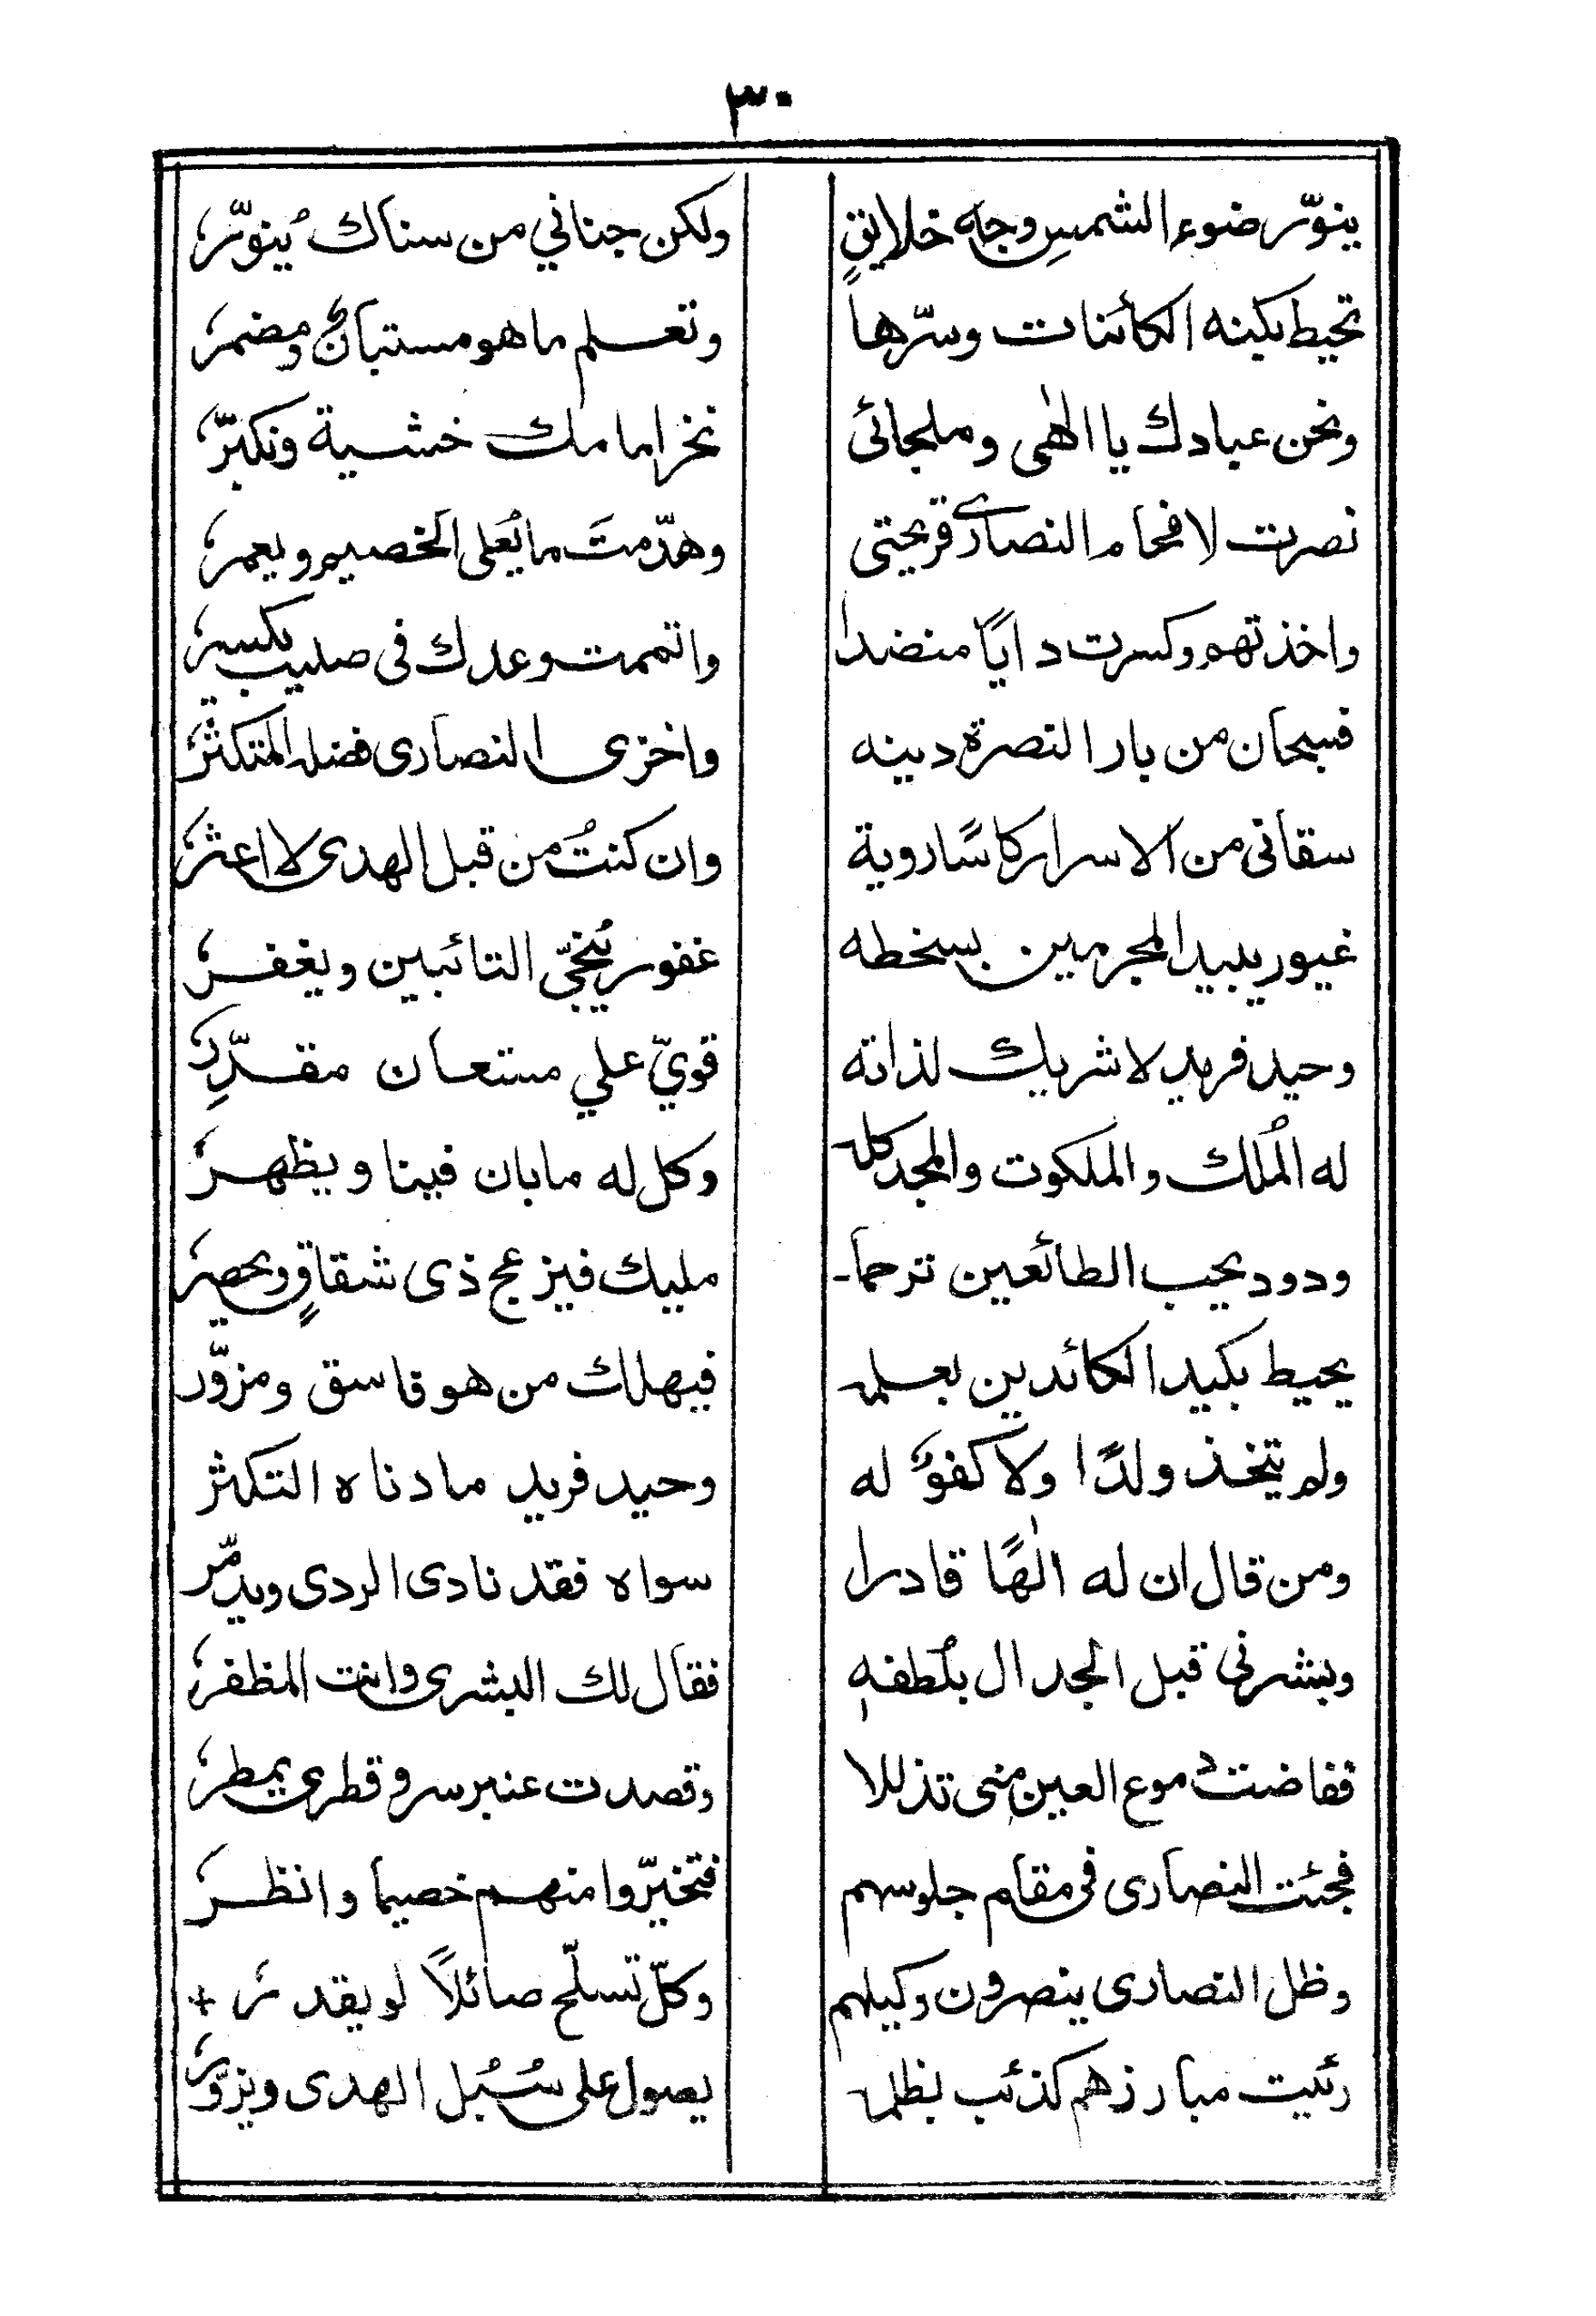 ٣٠
ينوّر ضوء الشمسِ وجه خلائقٍ ولكن جناني من سناك يُنوّرُ
تحيط بكنه الكائنات وسرّها وتعلم ما هو مستبانٌ ومضمرُ
ونحن عبادك يا الٰهى وملجائى نخر امامك خشية ونكبّرُ
نصرت لافحام النصارى قريحتى وهدّمتَ ما يُعلى الخصيم ويعمرُ
واخذتهم وكسرت دايًا منضدا واتممت وعدك فى صليب يكسرُ
فسبحان من بار النصرة دينه واخزى النصارى فضله المتكثرُ
سقانى من الاسرار كاسًا روية وان كنتُ من قبل الهدى لا اعثرُ
غيور يبيد المجرمين بسخطه غفور يُنجّي التائبين ويغفرُ
وحيد فريد لا شريك لذاته قويّ علي مستعان مقدِّرُ
له المُلك والملكوت والمجد كله وكل له ما بان فينا ويظهرُ
ودود يحب الطائعين ترحما۔ مليك فيزعج ذى شقاقٍ ويحصرُ
يحيط بكيد الكائدين بعلمه فيهلك من هو فاسق ومزوّر
ولم يتخذ ولدًا ولا كفوٌ له وحيد فريد ما دناه التكثر
ومن قال ان له الٰهًا قادرا سواه فقد نادى الردى ويدمّر
وبشرنى قبل الجدال بلُطفهٖ فقال لك البشرى وانت المظفرُ
ففاضت دموع العين منى تذللا وقصدت عنبرسر وقطرى يمطرُ
فجئت النصارى فى مقام جلوسهم فتخيّروا منهم خصيما وانظرُ
وظل النصارى ينصرون وكيلهم وكلّ تسلّح صائلًا لو يقدرُ +
رئيت مبارزهم كذئب بظلمه يصول على سُبُل الهدى ويزوّرُ